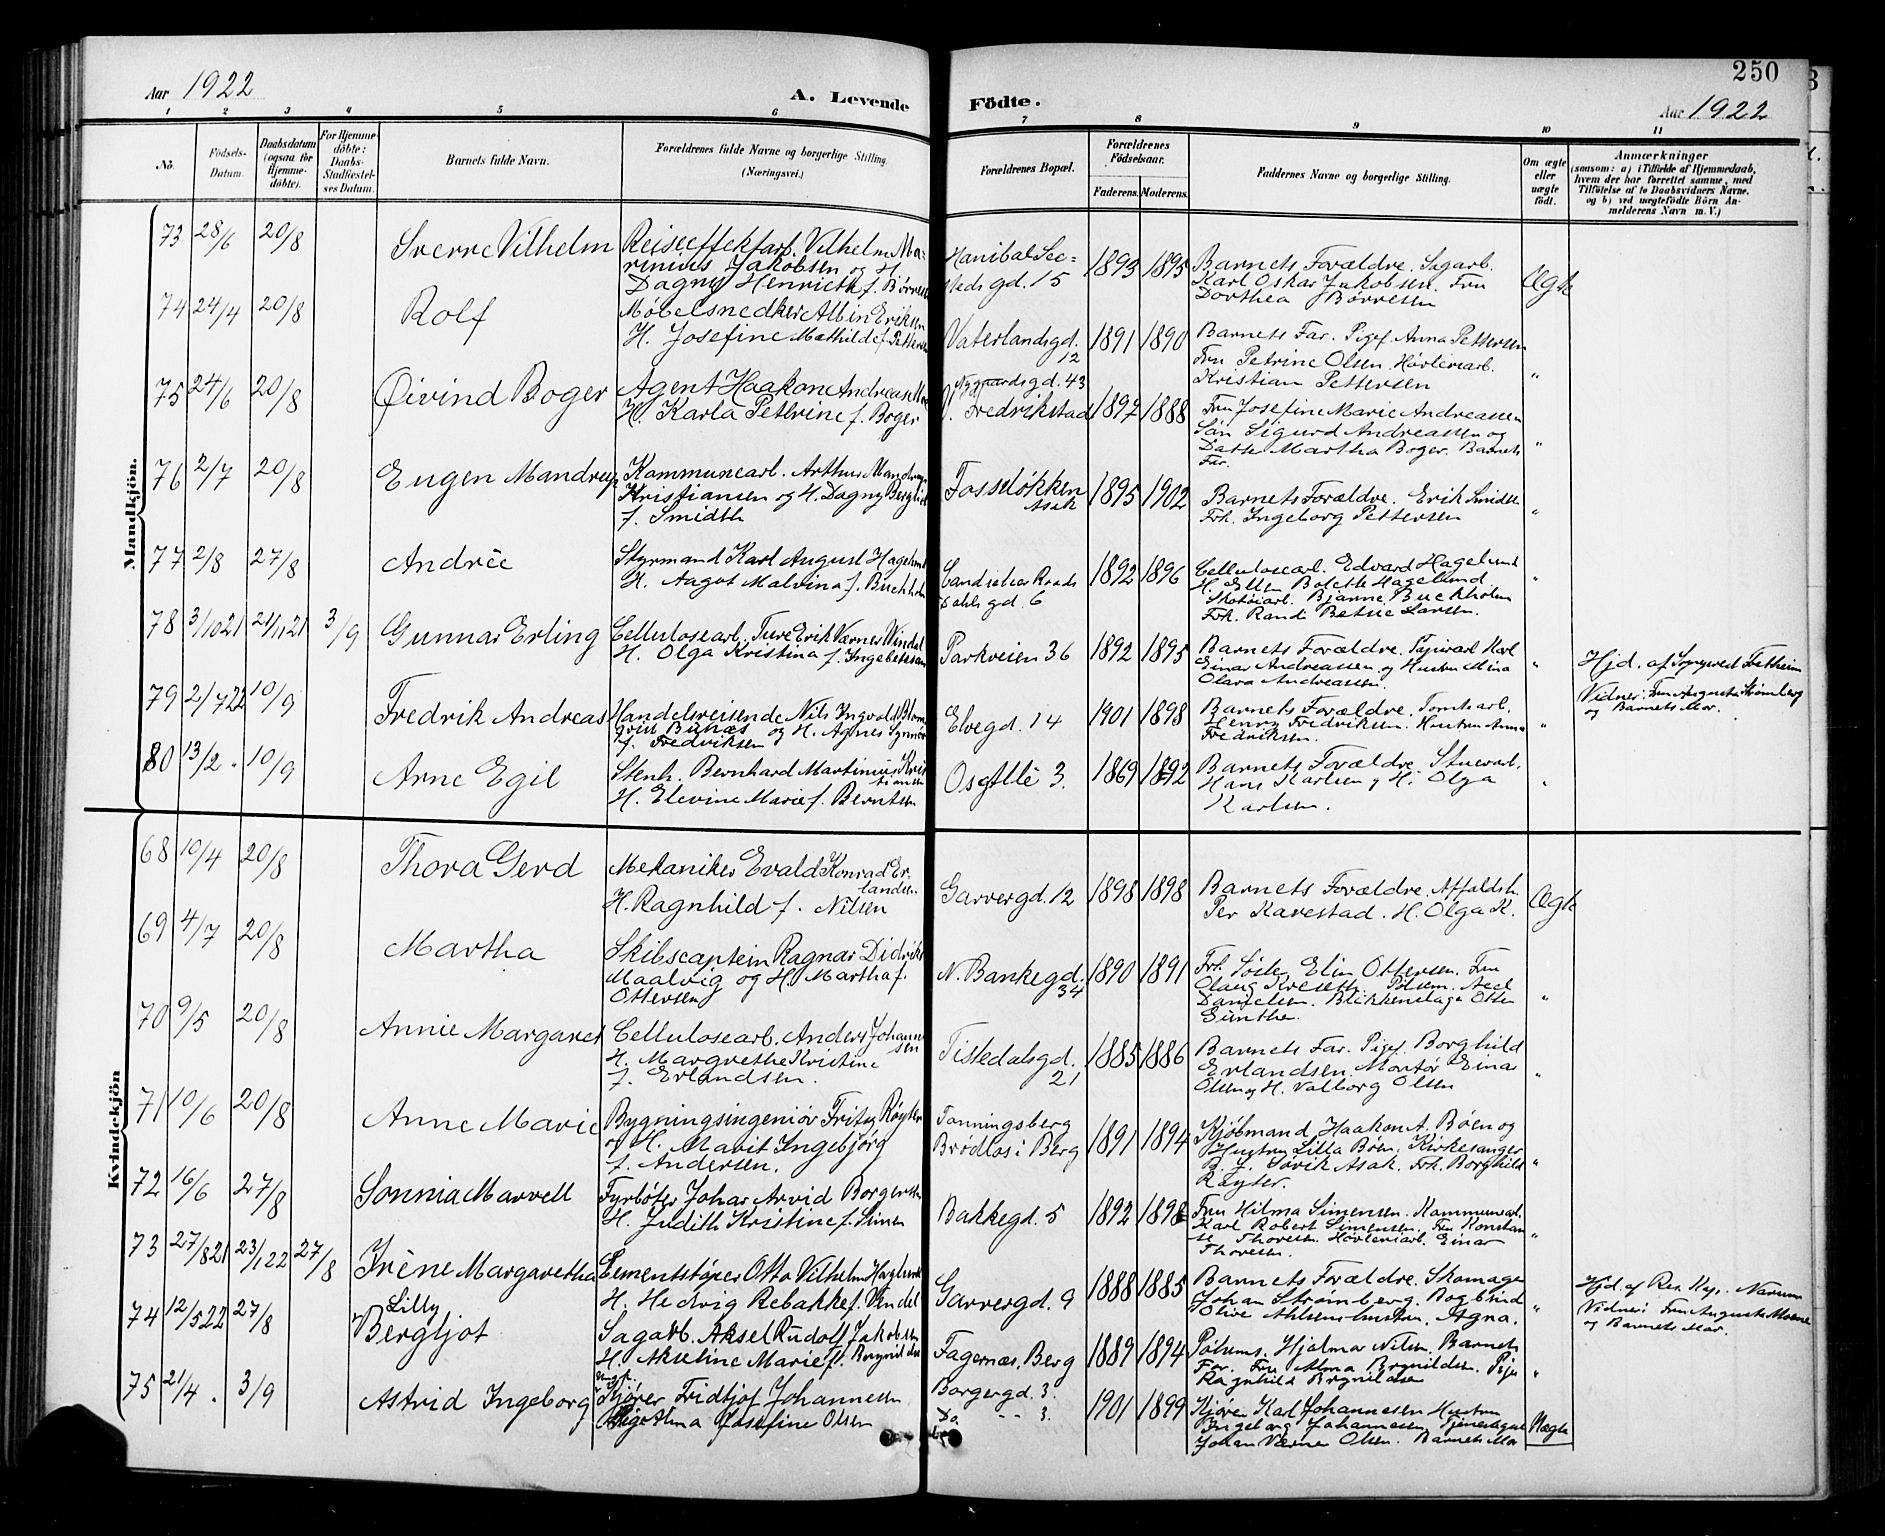 250
Aar 1922
A. Levende Födte.
Aar 1922
1 2 3 4 5 6 7 8 9 10 11
No.
Fødsels-Datum.
Daabsdatum (ogsaa for Hjemmedöbte).
For Hjemmedöbte: Daabs-Stadfæstelses Datum.
Barnets fulde Navn.
Forældrenes fulde Navne og borgerlige Stilling. (Næringsvei.)
Forældrenes Bopæl.
Forældrenes Födselsaar.
Faderens. Moderens.
Faddernes Navne og borgerlige Stilling.
Om ægte eller uægte födt.
Anmærkninger
(saasom: a) i Tilfælde af Hjemmedaab, hvem der har forrettet samme, med Tilföielse af to Daabsvidners Navne, og b) ved uægtefödte Börn Anmelderens Navn m. V.)
Mandkjön.
73 28/6 20/8 Sverre Vilhelm
Reiseeffektarb. Vilhelm Marinius Jakobsen og H. Dagny Henriette f. Børresen
Hanibal Seesteds gd. 15
1893 1895
Barnets Forældre. Sagarb.
Karl Oskar Jakobsen. Fru
Dorthea Børresen
Ægte
74 24/4 20/8 Rolf
Møbelsnedker Albin Eriksen
H. Josefine Mathilde f. Pettersen
Vaterlandsgd. 12
1891 1890
Barnets Far. Pige Anna Pettersen
Fru Petrine Olsen. Høvleriarb.
Kristian Pettersen
"
75 24/6 20/8 Øivind Boger
Agent Haakon Andreas Moe
H. Karla Petrine f. Boger
Nygaardsgd. 43
Fredrikstad
1892 1888
Fru Josefine Marie Andreassen
Søn Sigurd Andreassen og
Datter Martha Boger. Barnets
Far.
"
76 2/7 20/8 Eugen Mandrup
Kommunearb. Arthur Mandrup
Kristiansen og H. Dagny Berghild
f. Smidth
Fosseløkken
Asak
1895 1902
Barnets Forældre. Erik Smidth
Frk. Ingeborg Pettersen
"
77 2/8 27/8 Andrée
Styrmand Karl August Hagelund
H. Aagot Malvina f. Buchholm
Dahls gd. 6
1892 1896
Cellulosearb. Edvard Hagelund
H. Ellen Bolette Hagelund
Skotøiarb. Bjarne Buckholm
Frk. Randi Betsie Larsen.
"
78 3/10 21 24/11 21 3/9 Gunnar Erling
Cellulosearb. Ture Erik Værnes Windel
H. Olga Kristina f. Ingebretsen
Parkveien 36
1892 1895
Barnets Forældre. Papirarb. Karl
Einar Andreassen og Hustru Mina
Olava Andreassen.
"
Hjd. af
Vidner: Fru Augusta Strømberg
og Barnets Mor.
79 2/7 22 10/9 Fredrik Andreas
Handelsreisende Nils Ingvald
og H. Agnes
f. Fredriksen
Elvegd. 14
1901 1898
Barnets Forældre. Tomtearb.
Henry Fredriksen. Hustru Anna
Fredriksen.
"
80 13/2 10/9 Arne Egil
Stenh. Bernhard Martinius Kristiansen
H. Elevine Marie f. Berntsen
Os Allé 3.
1869 1892
Barnets Forældre. Stuearb.
Hans Karlsen og H. Olga
Karlsen.
"
Kvindekjön
68 10/4 20/8 Thora Gerd
Mekaniker Evald Konrad Erlandsen
H. Ragnhild f. Nilsen
Garvergd. 12
1898 1898
Barnets Forældre. Affaldsh.
Per Kavestad. H. Olga K.
Ægte
69 4/7 20/8 Martha
Skibscaptein Ragnar Didrik
Maalvig og H. Martha f.
Ottersen
N. Bankegd. 34
1890 1891
Frk. Sisle Elin Ottersen. Fru
Danielsen. Blikkenslager Otto
Günther.
"
70 9/5 20/8 Annie Margaret
Cellulosearb. Anders Johannesen
H. Margrethe Kristine
f. Erlandsen.
Tistedalsgd. 21
1885 1886
Barnets Far. Pige Borghild
Erlandsen. Montør Einar
Olsen og H. Valborg Olsen
"
71 10/6 20/8 Anne Marie
Bygningsingeniør Fritz Røyter
og H. Marit Ingebjørg
f. Andersen.
Tonningsberg
Brødløs i Berg
1891 1894
Kjøbmand Haakon A. Bøen og
Hustru Lilla Bøen, Kirkesanger
B. J. Søvik Asak. Frk. Borghild
Røyter.
"
72 16/6 27/8 Sonnia Marvell
Fyrbøter Johan Arvid Borgersen
H. Judith Kristine f. Simensen
Bakkegd. 5
1892 1898
Fru Hilma Simensen. Kommunearb.
Karl Robert Simensen. Fru Konstanse Thoresen. Høvleriarb. Einar
Thoresen.
"
73 27/8 21 23/1 22 27/8 Irène Margaretha
Cementstøper Otto Vilhelm Haglund
H. Hedvig Rebakke f. Vindel
Garvergd. 9
1888 1885
Barnets Forældre. Skomager
Johan Strømberg. Bogbind
Olive Ahlsen. Hustru Agna.
"
Hjd. af Res. Kap.
Vidner: Fru Augusta Moene
og Barnets Mor.
74 12/5 22 27/8 Lilly Bergljot
Sagarb. Aksel Rudolf Jakobsen
H. Akseline Marie f. Brynildsen
Fagernæs, Berg
1889 1894
Hjalmar Nilsen. Barnets
Far. Fru Alma Brynildsen. Pige
Ragnhild Brynildsen
"
75 21/4 3/9 Astrid Ingeborg
Ungk. Kjører Fridtjof Johannesen
Pige Alma Josefine Olsen
Borgergd. 3.
Do. -"- 3.
1901 1899
Kjører Karl Johannesen Hustru
Ingeborg Johannesen. Tjenestepige
Johan Værner Olsen. Barnets Mor
Uægte